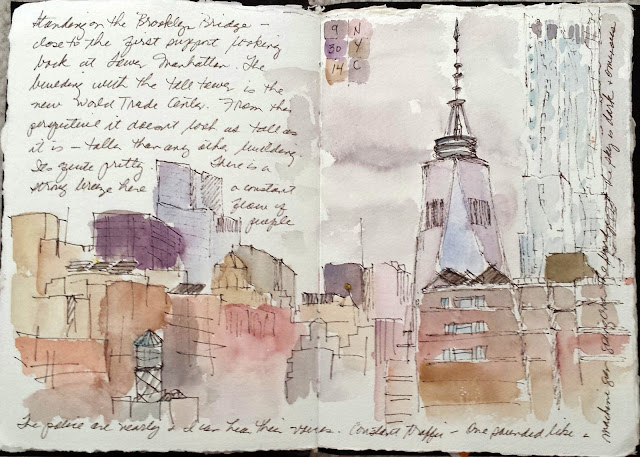 Standing on the Brooklyn Bridge –
close to the first support looking
back at Lower Manhattan. The
building with the tall tower is the
new World Trade Center. From this
perspective it doesn't look as tall as
it is – taller than any other building.
Its quite pretty. There is a
strong breeze here a constant
flow of
people
9 N
30 Y
14 C
The police are nearby & I can hear their sirens. Constant traffic – One sounded like a
machine gun the sky is dark & ominous